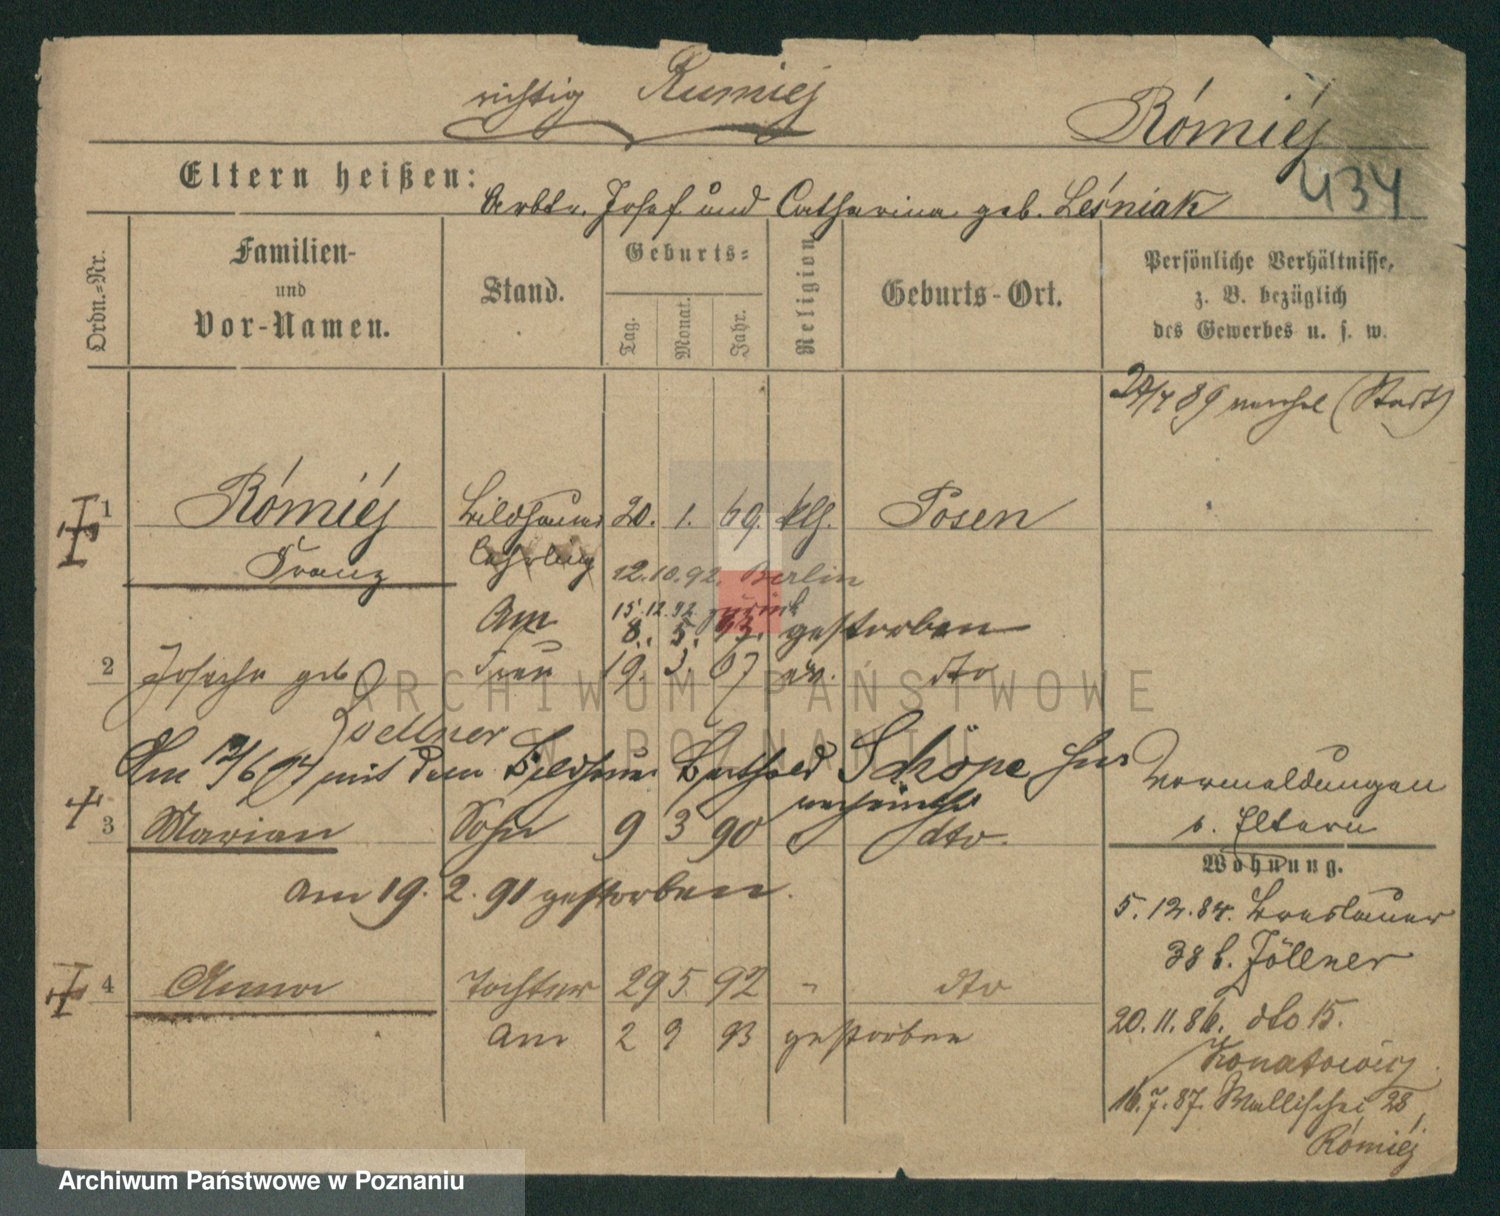 richtig Rumiej
Rómiéj
434
Eltern heißen: Arbtr. Josef und Catharina geb. Leśniak
Ordn.-Nr.
Familien-
und
Vor-Namen.
Stand.
Geburts-
Tag.
Monat.
Jahr.
Religion
Geburts-Ort.
Persönliche Verhältnisse,
z. B. bezüglich
des Gewerbes u. s. w.
89 (Stadt)
1 Rómiéj Bildhauer 20. 1. 69. kth. Posen
Franz Lehrling
12.10.92. Berlin
15.12.92. zurück
Am 8. 5. 93. gestorben
2 geb Frau 19. 3. 67 ev. dto
Zoellner
Am 12/6 94 mit dem Bildhauer Berthold Schöpe hier
verheirathet
Vormeldungen
s. Eltern
3 Marian Sohn 9 3 90 dto.
am 19. 2. 91 gestorben.
Wohnung.
5. 12. 84. Breslauer
38 b. Zöllner
4 Anna Tochter 29 5 92 " dto
am 2 9 93 gestorben
20. 11. 86. dto 15.
16. 7. 87. Wallischei 28
Rómiéj
ARCHIWUM PAŃSTWOWE
W POZNANIU
Archiwum Państwowe w Poznaniu